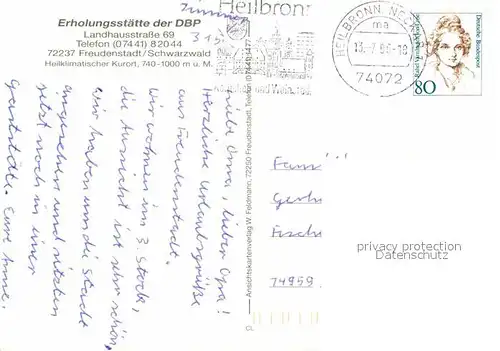 Erholungsstätte der DBP
Landhausstraße 69
Telefon (07441) 82044
72237 Freudenstadt/Schwarzwald
Heilklimatischer Kurort, 740-1000 m u. M.
Zimmer
315
Liebe Oma, lieber Opa!
Herzliche Urlaubsgrüße
aus Freudenstadt.
Wir wohnen im 3. Stock,
die Aussicht ist sehr schön.
Wir haben uns die Stadt
angesehen und sitzen
jetzt noch in einer
Gaststätte. Eure Anne.
Ansichtskartenverlag W. Feldmann, 72250 Freudenstadt, Telefon
Heilbronn
HEILBRONN
ma
74072
Deutsche Bundespost
80
Fam
Gerh
Fisch
74959
privacy protection
Datenschutz